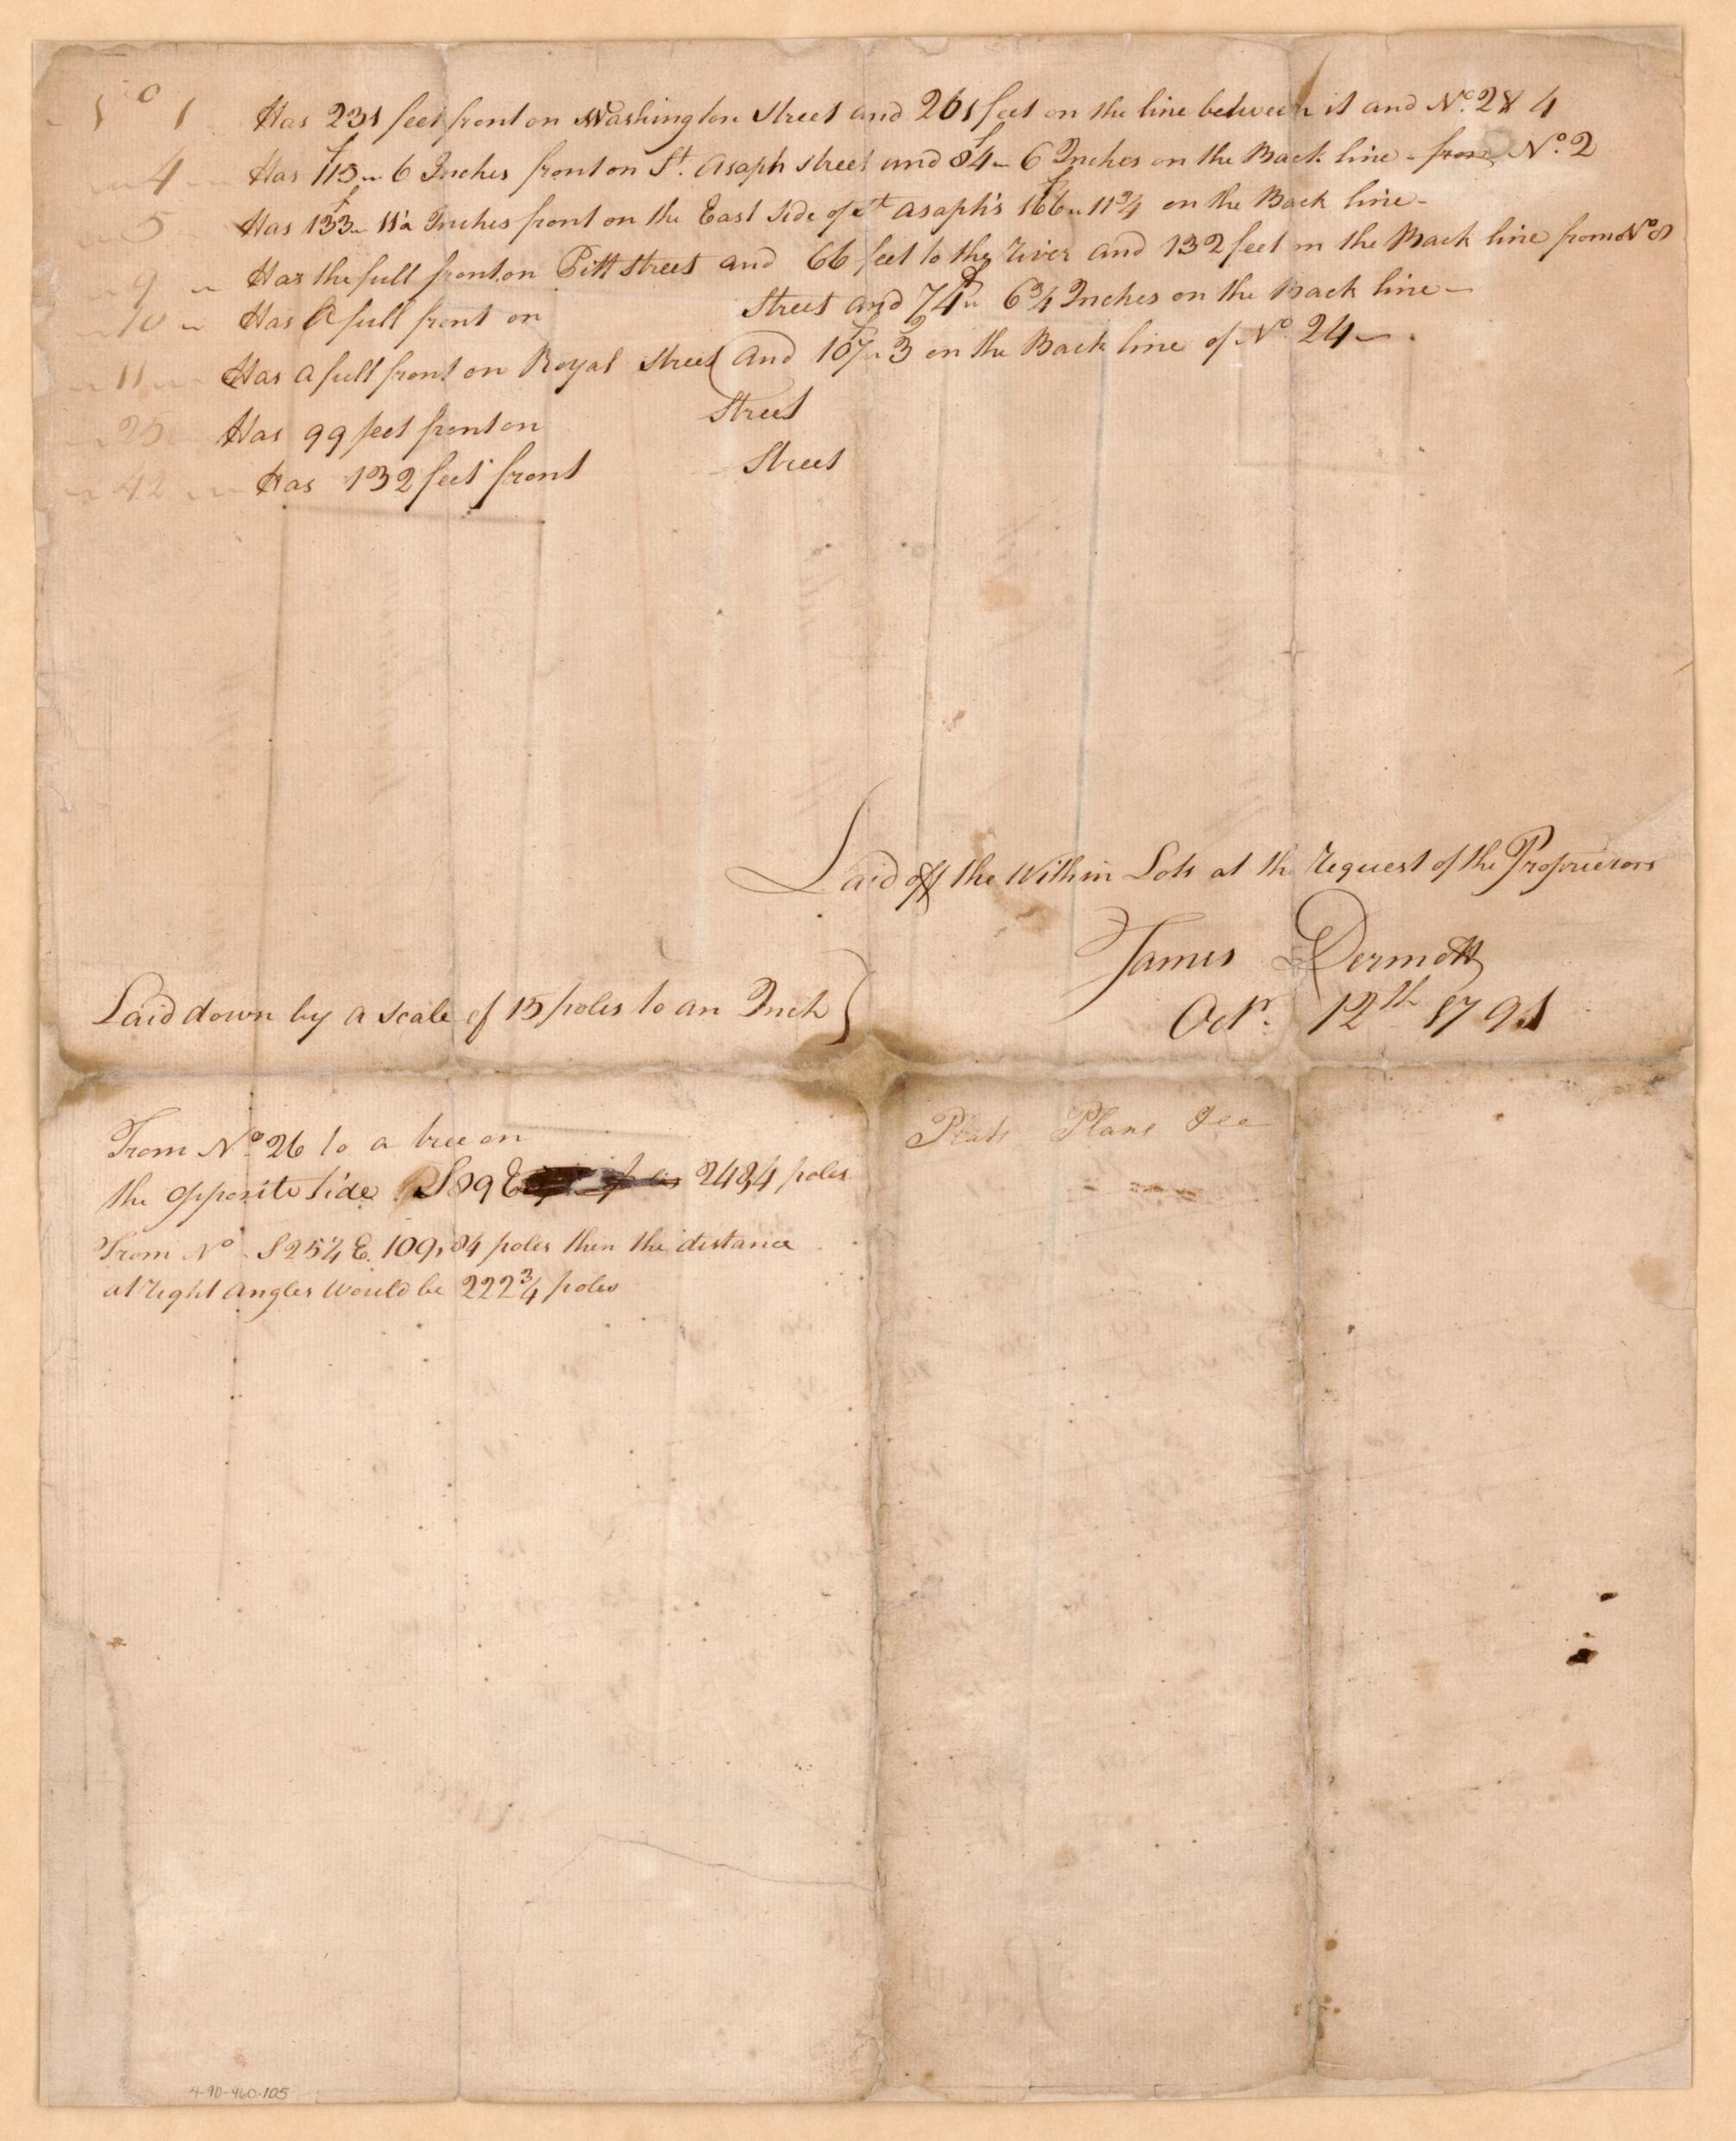 No 1 Has 231 feet front on Washington Street and 261 feet on the line between it and No. 2 & 4
4 Has 113 f 6 Inches front on St. Asaph street and 84 f 6 Inches on the Back line from No. 2
5 Has 133 f 11 Inches front on the East Side of St Asaph's 166 f 11 3/4 on the Back line
9 Has the full front on Pitt Street and 66 feet to the river and 132 feet on the Back line from No 8
10 Has A full front on Street and 74 f 6 3/4 Inches on the Back line
11 Has A full front on Royal Street and 107 f 3 on the Back line of No. 24
25 Has 99 feet front on Street
42 Has 132 feet front Street
Laid off the Within Lots at the request of the Proprietors
James Dermott
Octr. 12th 1791
Laid down by a scale of 15 poles to an Inch
From No. 26 to a tree on
the opposite side S 89 E 248,4 poles
From No S 25 1/4 E. 109,84 poles then the distance
at right angles would be 222 3/4 poles
Plats Plans &ca
4-90-460-105